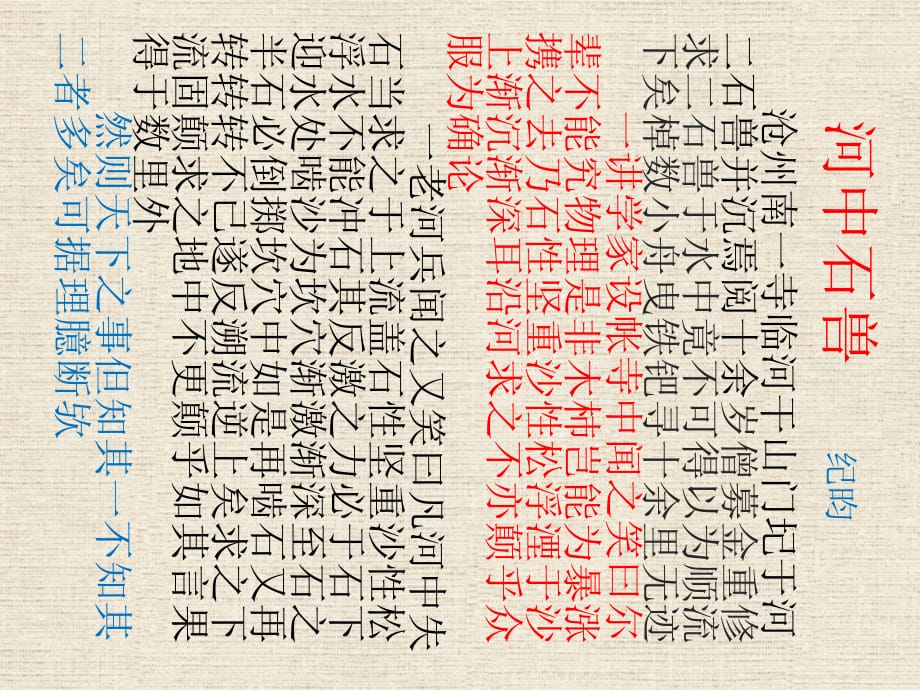 河中石兽
纪昀
沧州南一寺临河于山门圮于河
二石兽并沉焉阅十余岁僧募金重修
求二石兽于水中竟不可得以为顺流
下矣棹数小舟曳铁钯寻十余里无迹
一讲学家设帐寺中闻之笑曰尔
辈不能究物理是非木杮岂能为暴涨
携之去乃石性坚重沙性松浮湮于沙
上渐沉渐深耳沿河求之不亦颠乎众
服为确论
一老河兵闻之又笑曰凡河中失
石当求之于上流盖石性坚重沙性松
浮水不能冲石其反激之力必于石下
迎水处啮沙为坎穴渐激渐深至石之
半石必倒掷坎穴中如是再啮石又再
转转转不已遂反溯流逆上矣求之下
流固颠求之地中不更颠乎如其言果
得于数里外
然则天下之事但知其一不知其
二者多矣可据理臆断欤